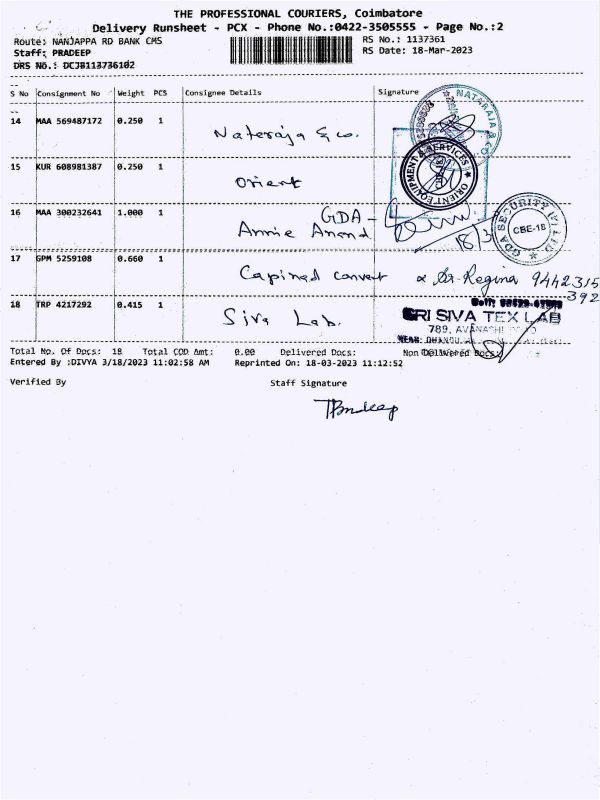 THE PROFESSIONAL COURIERS, Coimbatore
Delivery Runsheet - PCX - Phone No.:0422-3505555 - Page No.:2
Route: NANJAPPA RD BANK CMS RS No.: 1137361
Staff: PRADEEP RS Date: 18-Mar-2023
DRS No.: DCJB113736102
S No Consignment No Weight PCS Consignee Details Signature
14 MAA 569487172 0.250 1 Nataraja & co. NATARAJA & CO
15 KUR 608981387 0.250 1 Orient ORIENT EQUIPMENT & SERVICES
16 MAA 300232641 1.000 1 GDA -
Annie Anand 18/3 GDA SECURITY (P) LTD CBE-18
17 GPM 5259108 0.660 1 Capined convert Sr. Regina 9442315
392
18 TRP 4217292 0.415 1 Siva Lab. SRI SIVA TEX LAB
789, AVANASHI ROAD
Total No. Of Docs: 18 Total COD Amt: 0.00 Delivered Docs: Non Delivered Docs:
Entered By :DIVYA 3/18/2023 11:02:58 AM Reprinted On: 18-03-2023 11:12:52
Verified By Staff Signature